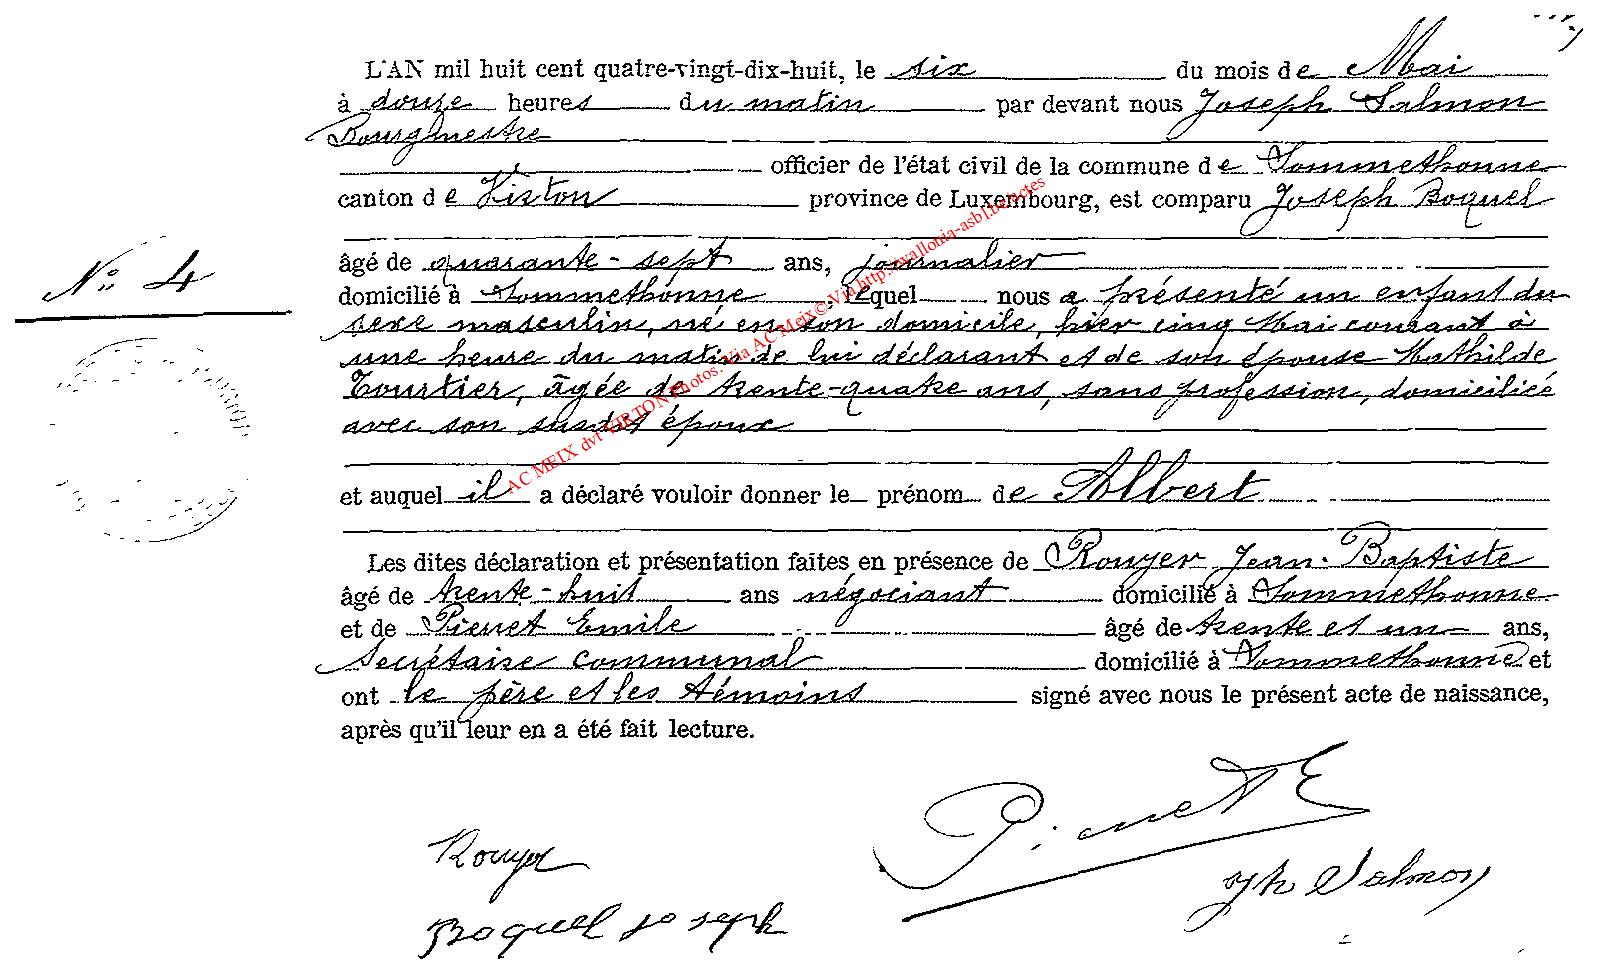 L'AN mil huit cent quatre-vingt-dix-huit, le six du mois de Mai
à douze heures du matin par devant nous Joseph Salmon
Bourgmestre
officier de l'état civil de la commune de Sommethonne
canton de Virton province de Luxembourg, est comparu Joseph Boquel
N° 4
âgé de quarante-sept ans, journalier
domicilié à Sommethonne lequel nous a présenté un enfant du
sexe masculin, né en son domicile, hier cinq Mai courant à
une heure du matin de lui déclarant et de son épouse Mathilde
Tourtier, âgée de trente-quatre ans, sans profession, domiciliée
avec son susdit époux
et auquel il a déclaré vouloir donner le prénom de Albert
Les dites déclaration et présentation faites en présence de Rouyer Jean-Baptiste
âgé de trente-huit ans négociant domicilié à Sommethonne
et de Pierret Emile âgé de trente et un ans,
Secrétaire communal domicilié à Sommethonne et
ont le père et les témoins signé avec nous le présent acte de naissance,
après qu'il leur en a été fait lecture.
Pierret E
Rouyer
Jph Salmon
Boquel Joseph
AC MEIX dvt VIRTON Photos. Via AC Meix© Via http://wallonia-asbl.be/actes